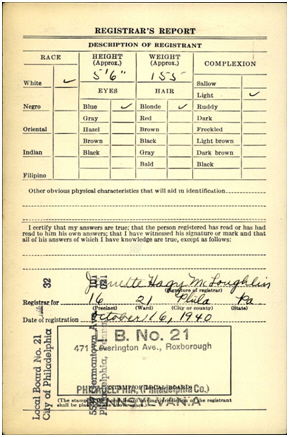 REGISTRAR'S REPORT
DESCRIPTION OF REGISTRANT
RACE HEIGHT (Approx.) WEIGHT (Approx.) COMPLEXION
5'6" 155
White ✓ EYES HAIR Sallow
Light ✓
Negro Blue ✓ Blonde ✓ Ruddy
Gray Red Dark
Oriental Hazel Brown Freckled
Brown Black Light brown
Indian Black Gray Dark brown
Bald Black
Filipino
Other obvious physical characteristics that will aid in identification
I certify that my answers are true; that the person registered has read or has had
read to him his own answers; that I have witnessed his signature or mark and that
all of his answers of which I have knowledge are true, except as follows:
Hagy McLoughlin
(Signature of registrar)
Registrar for 16 21 Phila Pa.
(Precinct) (Ward) (City or county) (State)
Date of registration October 16, 1940
32
Local Board No. 21
City of Philadelphia
Germantown Ave.
L. B. No. 21
471 Leverington Ave., Roxborough
PHILADELPHIA (Philadelphia Co.)
PENNSYLVANIA
(The stamp of the registrant
shall be